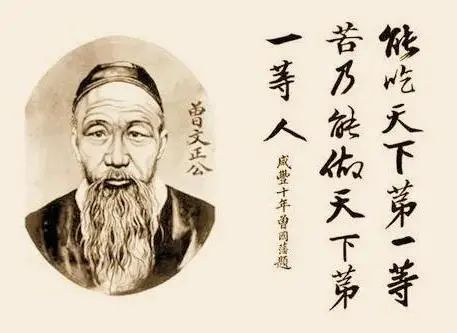 能吃天下第一等
苦乃能做天下第
一等人
咸豐十年曾國藩題
曾文正公